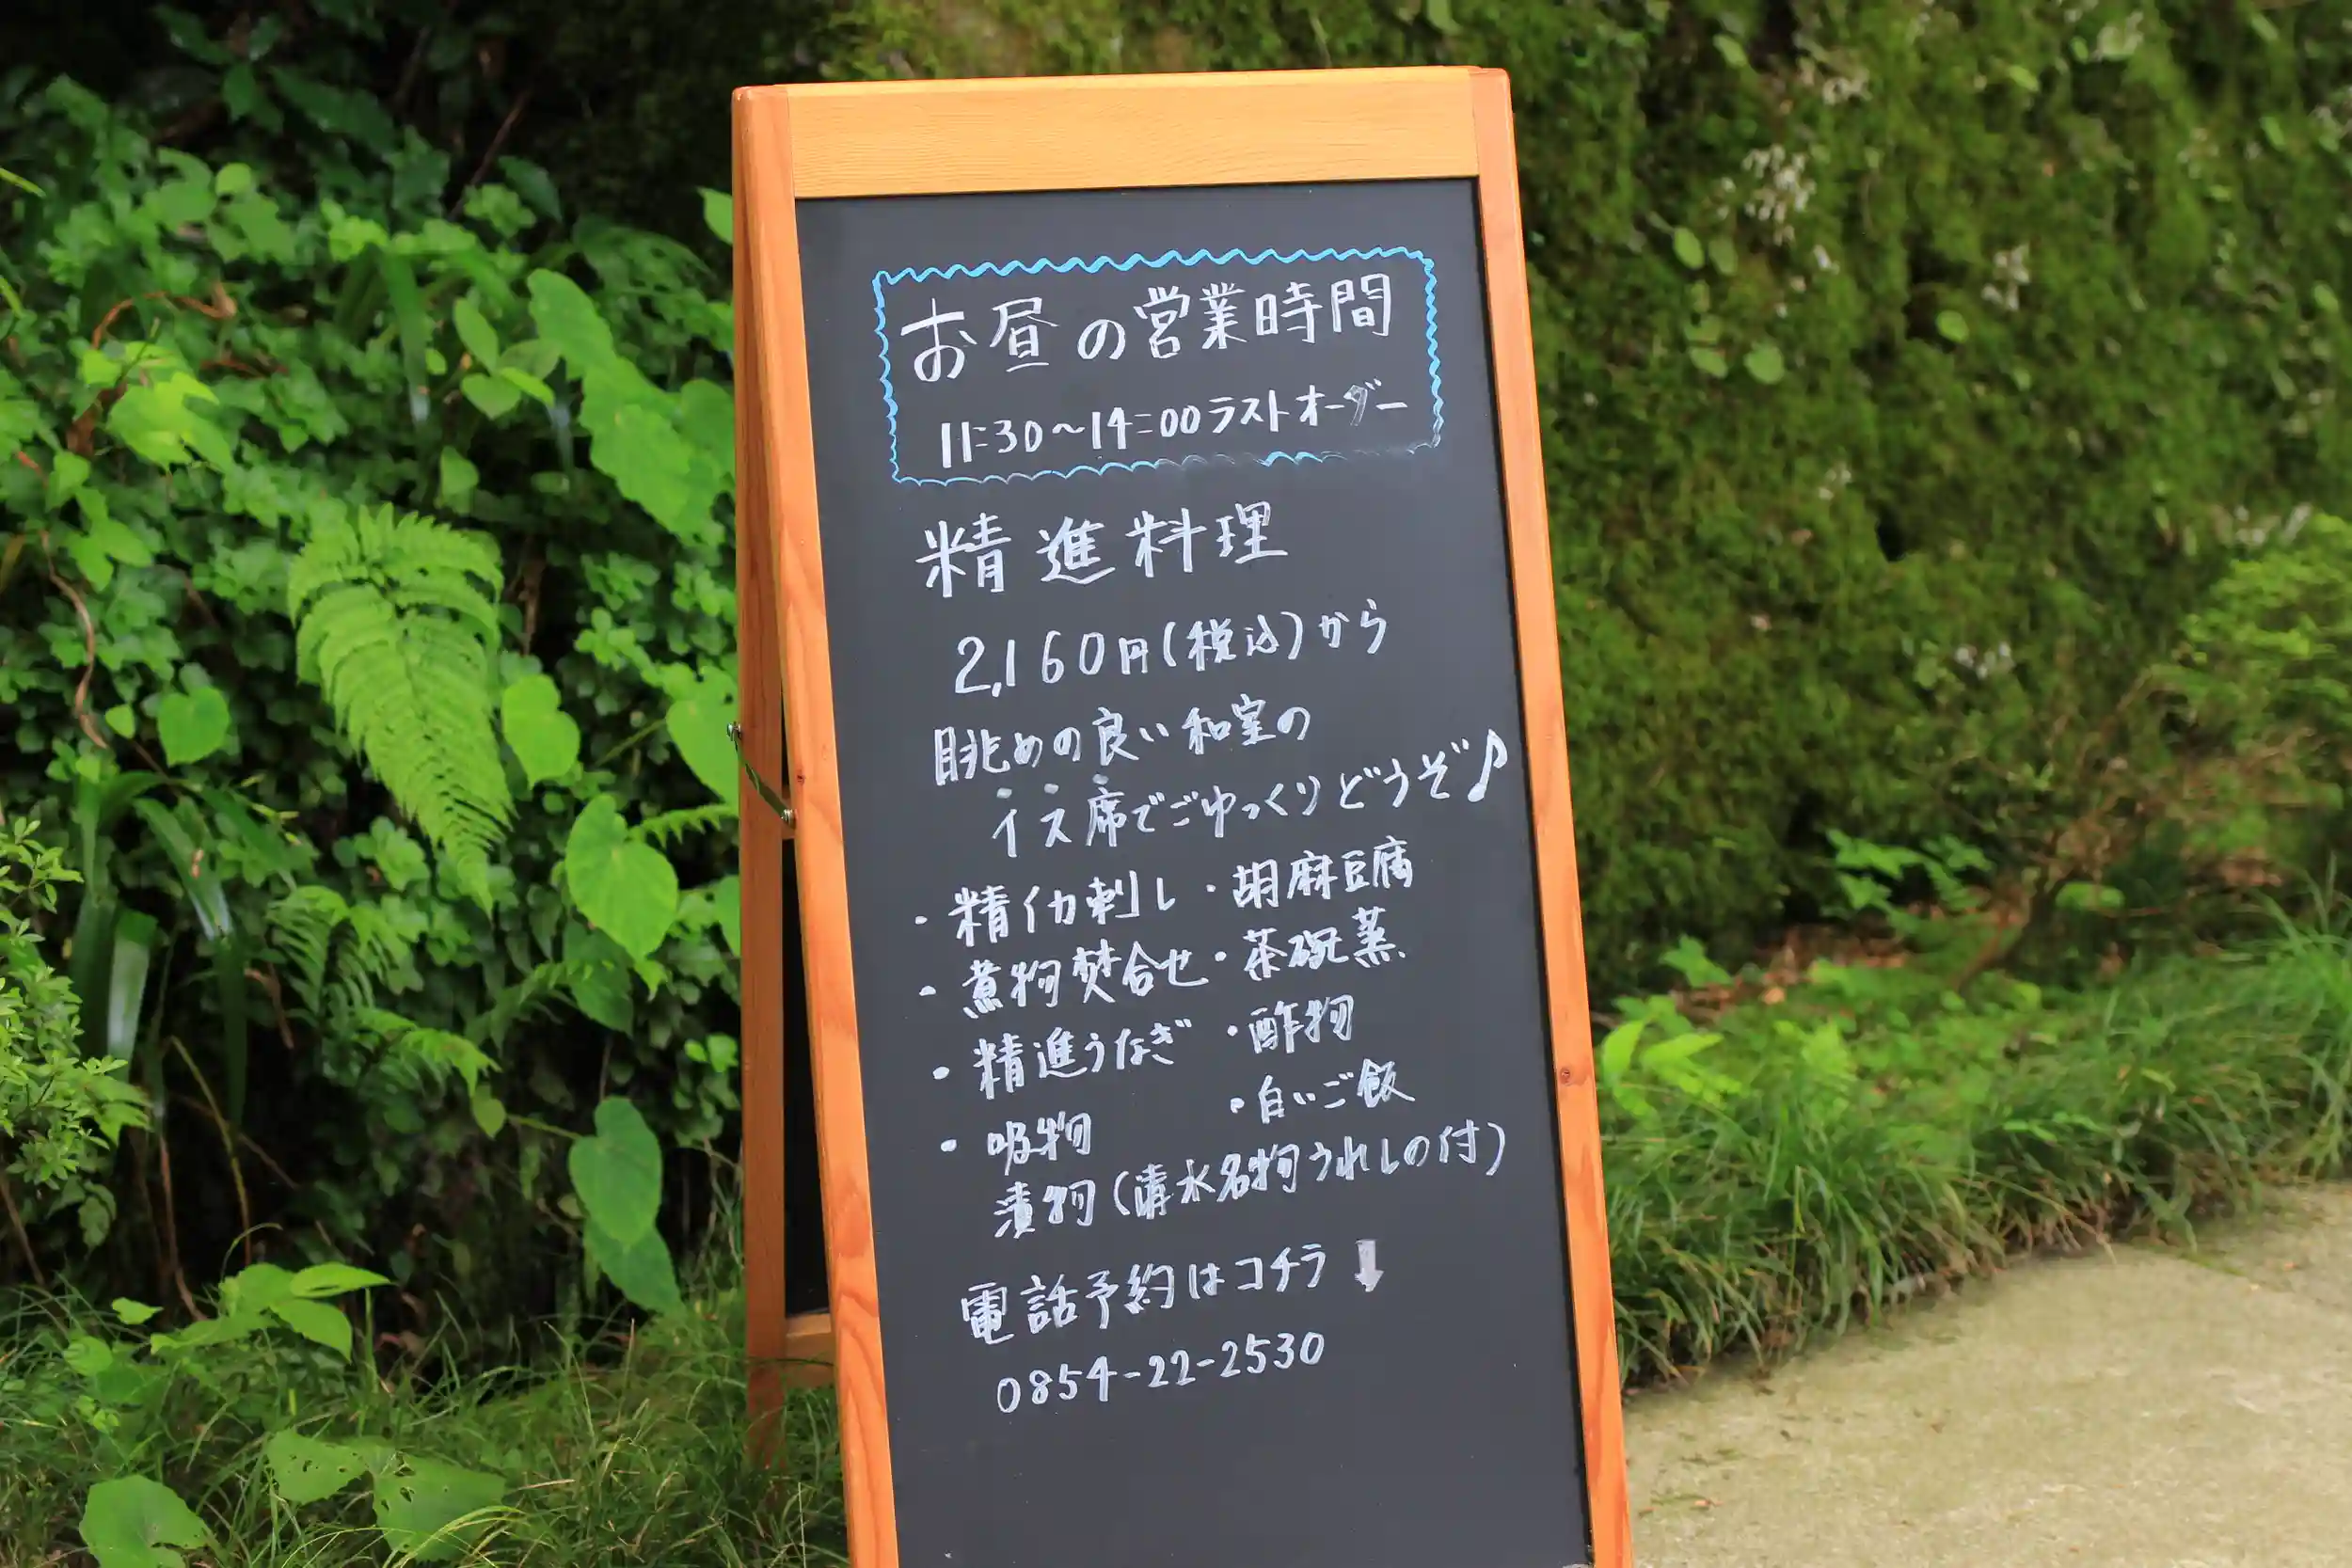 お昼の営業時間
11:30～14:00ラストオーダー
精進料理
2,160円(税込)から
眺めの良い和室の
イス席でごゆっくりどうぞ♪
・精イカ刺し・胡麻豆腐
・煮物焚合せ・茶碗蒸
・精進うなぎ ・酢物
・吸物 ・白いご飯
漬物(清水名物うれしの付)
電話予約はコチラ⬇
0854-22-2530